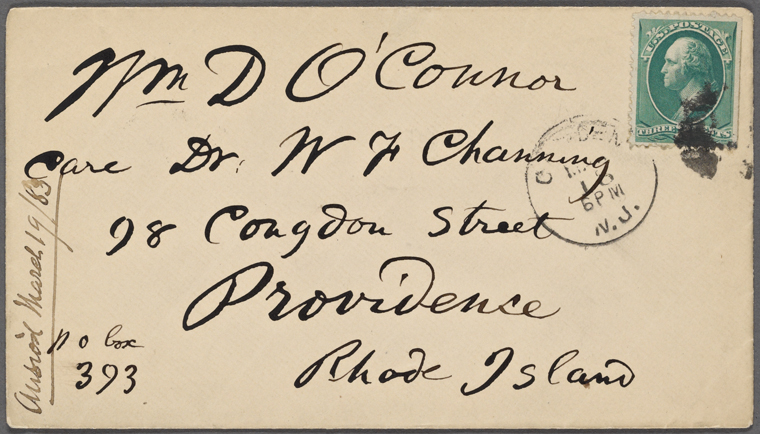 Wm D O'Connor
Care Dr. W F Channing
98 Congdon Street
Providence
Rhode Island
P O box
393
March 19/83
U.S. POSTAGE
THREE CENTS
6 PM
N.J.